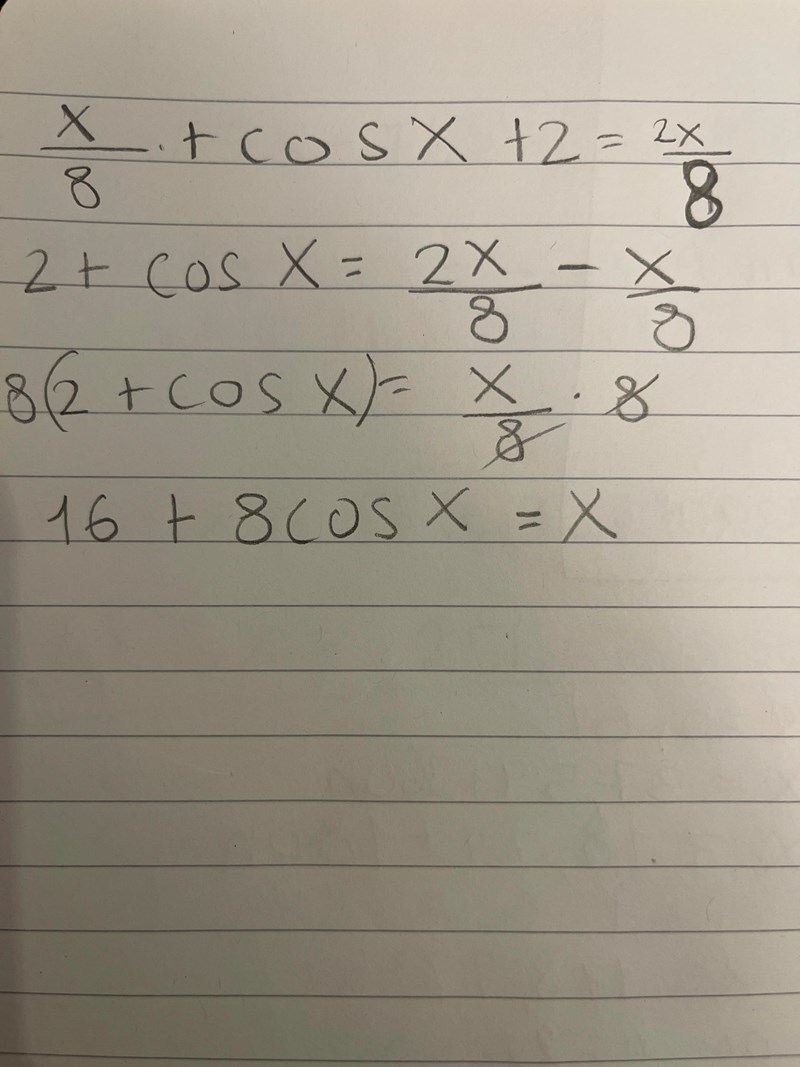 x/8 . + cos x + 2 = 2x/8
2 + cos x = 2x/8 - x/8
8(2 + cos x) = x/8 · 8
16 + 8cos x = x